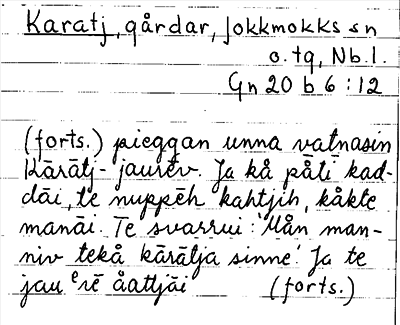 Karatj, gårdar, Jokkmokks sn
o. tg, Nb. l.
Gn 20 b 6 : 12
(forts.) pieggan unna vatnasin
Kārātj-jaurev. Ja kå påti kad-
dāi, te nuppēh kahtjih, kåkte
manāi. Te svarrui: 'Mån man-
niv tekå kārātja sinne'. Ja te
jau ērē åattjāi (forts.)